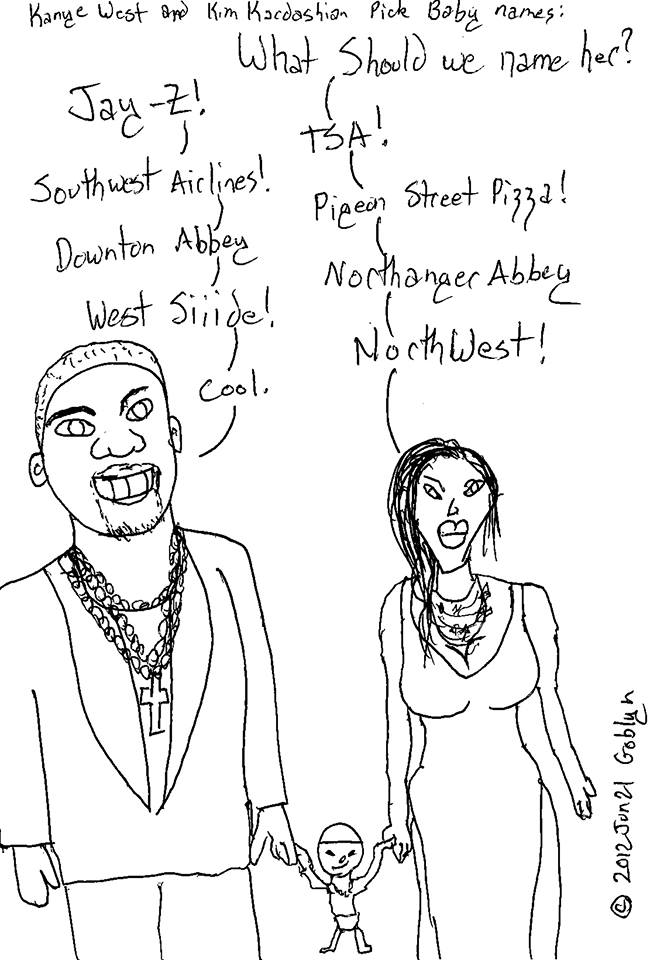 Kanye West and Kim Kardashian Pick Baby names:
What Should we name her?
Jay-Z!
TSA!
Southwest Airlines!
Pigeon Street Pizza!
Downton Abbey
Northanger Abbey
West Siiide!
NorthWest!
Cool.
© 2012Jun21 Goblyn